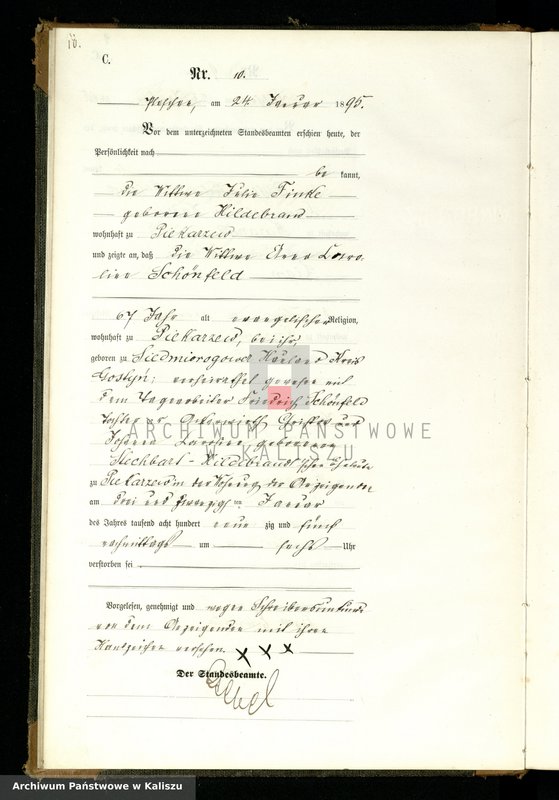 10.
C.
Nr. 10.
Pleschen, am 24 Januar 1895.
Vor dem unterzeichneten Standesbeamten erschien heute, der
Persönlichkeit nach
be kannt,
die Wittwe Julie Finke
geborene Hildebrand
wohnhaft zu Piekarzew
und zeigte an, daß die Wittwe Anna Caro-
line Schönfeld
67 Jahr alt evangelischer Religion,
wohnhaft zu Piekarzew, bei ihr,
geboren zu Siedmiorogowo Kreis
Gostyń; verheirathet gewesen mit
dem Tagearbeiter Friedrich Schönfeld
Tochter und
Johanna geborenen
Hildebrand
zu Piekarzew in der Wohnung der Anzeigenden
am drei und zwanzigsten Januar
des Jahres tausend acht hundert neun zig und fünf
nachmittags um sechs Uhr
verstorben sei
Vorgelesen, genehmigt und wegen Schreibensunkunde
von dem Anzeigenden mit ihren
Handzeichen versehen. XXX
Der Standesbeamte.
ARCHIWUM PAŃSTWOWE
W KALISZU
Archiwum Państwowe w Kaliszu